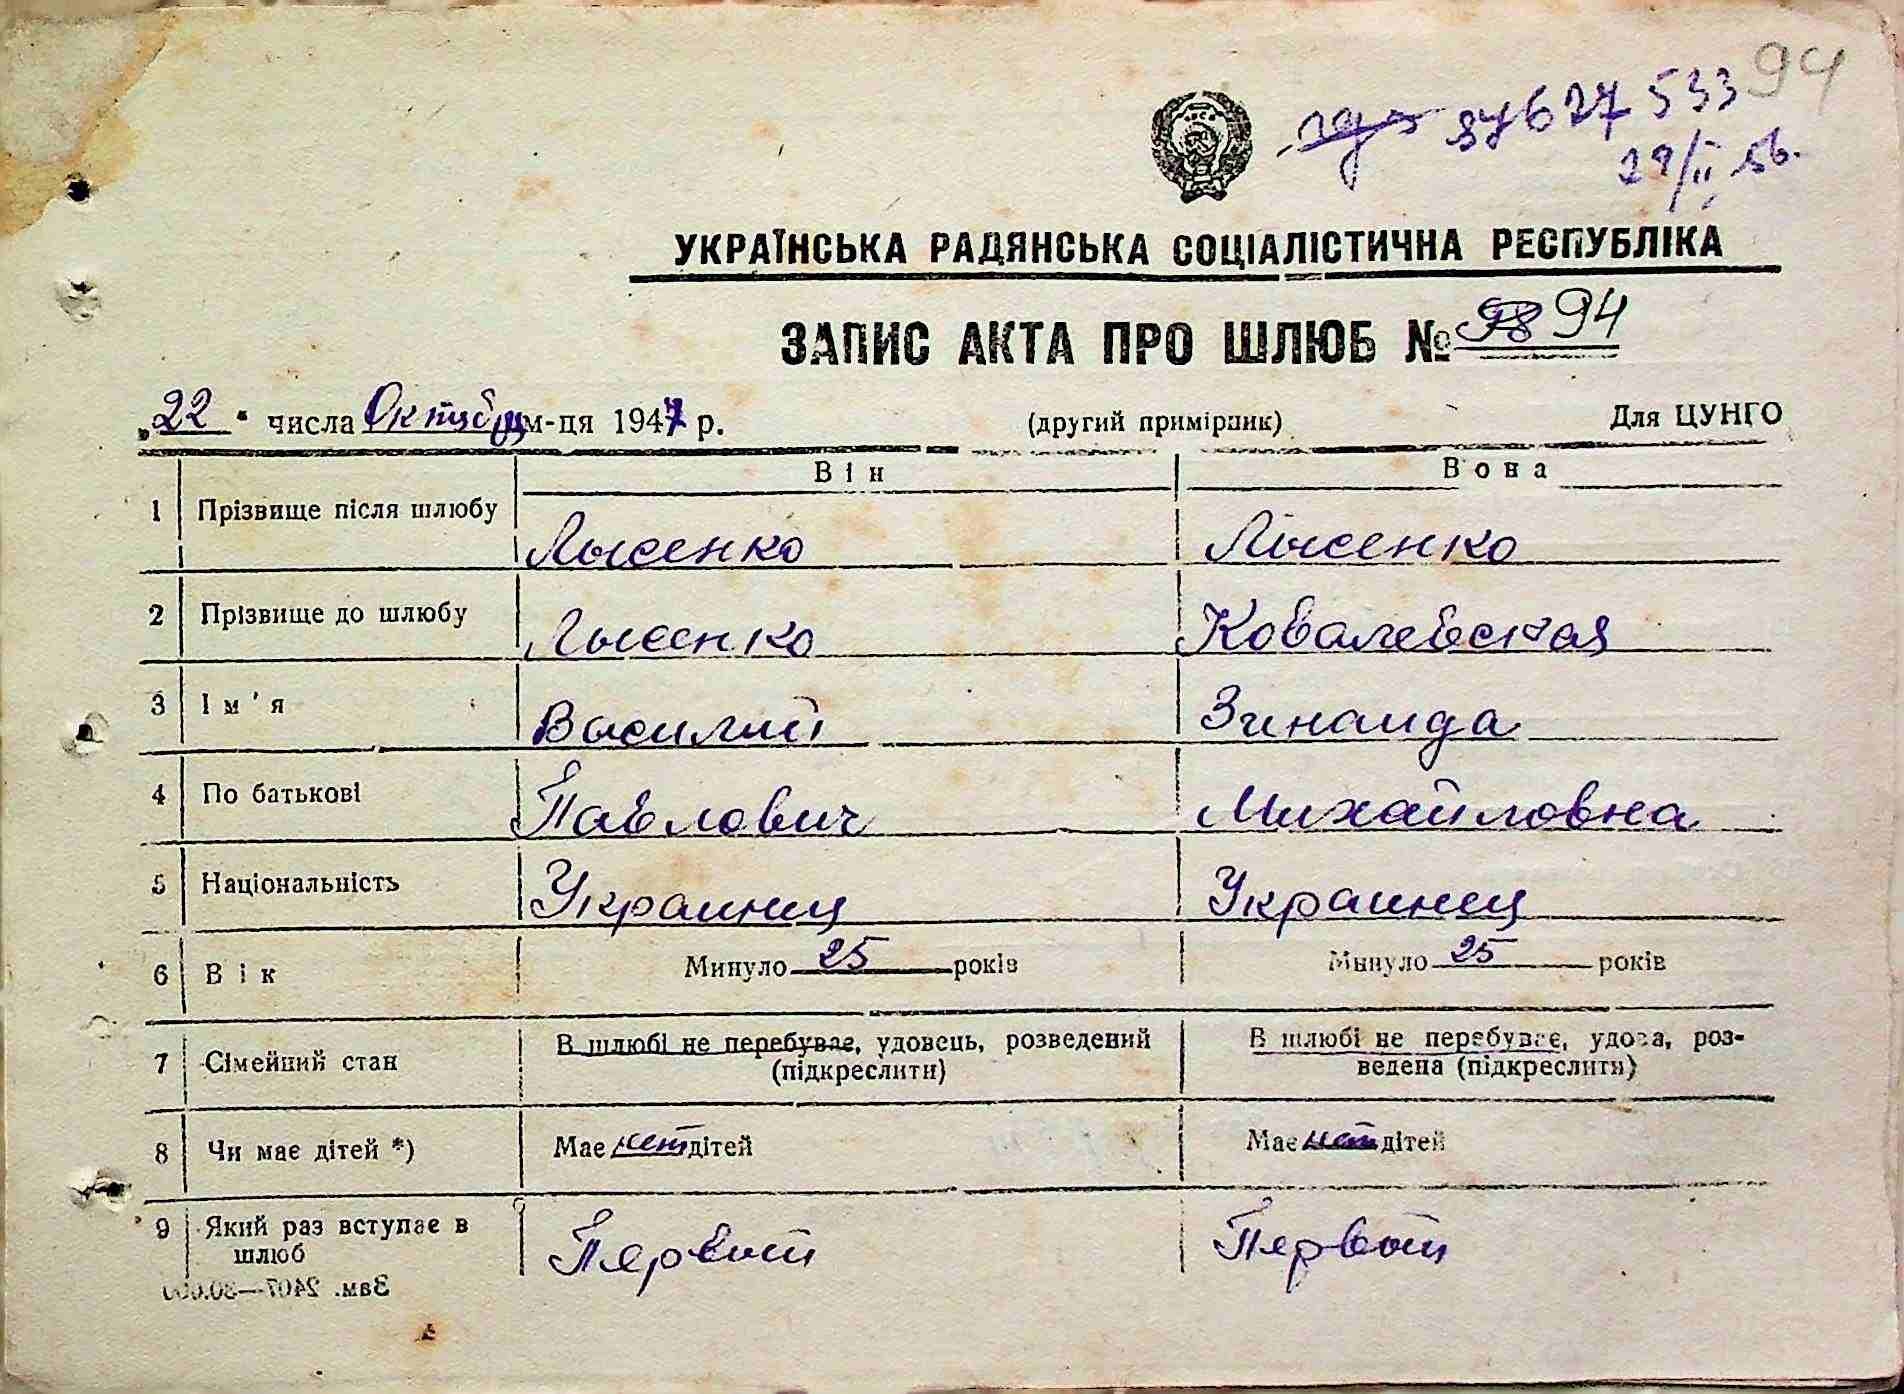 94
37627533
29/II 56.
УКРАЇНСЬКА РАДЯНСЬКА СОЦІАЛІСТИЧНА РЕСПУБЛІКА
ЗАПИС АКТА ПРО ШЛЮБ № 94
„22“ числа Октября м-ця 1947 р. (другий примірник) Для ЦУНГО
Він Вона
1 Прізвище після шлюбу Лысенко Лысенко
2 Прізвище до шлюбу Лысенко Ковалевская
3 Ім'я Василий Зинаида
4 По батькові Павлович Михайловна
5 Національність Украинец Украинец
6 Вік Минуло 25 років Минуло 25 років
7 Сімейний стан В шлюбі не перебуває, удовець, розведений (підкреслити) В шлюбі не перебуває, удова, роз-
ведена (підкреслити)
8 Чи має дітей *) Має нет дітей Має нет дітей
9 Який раз вступає в
шлюб Первый Первый
Зам. 2407—30.000